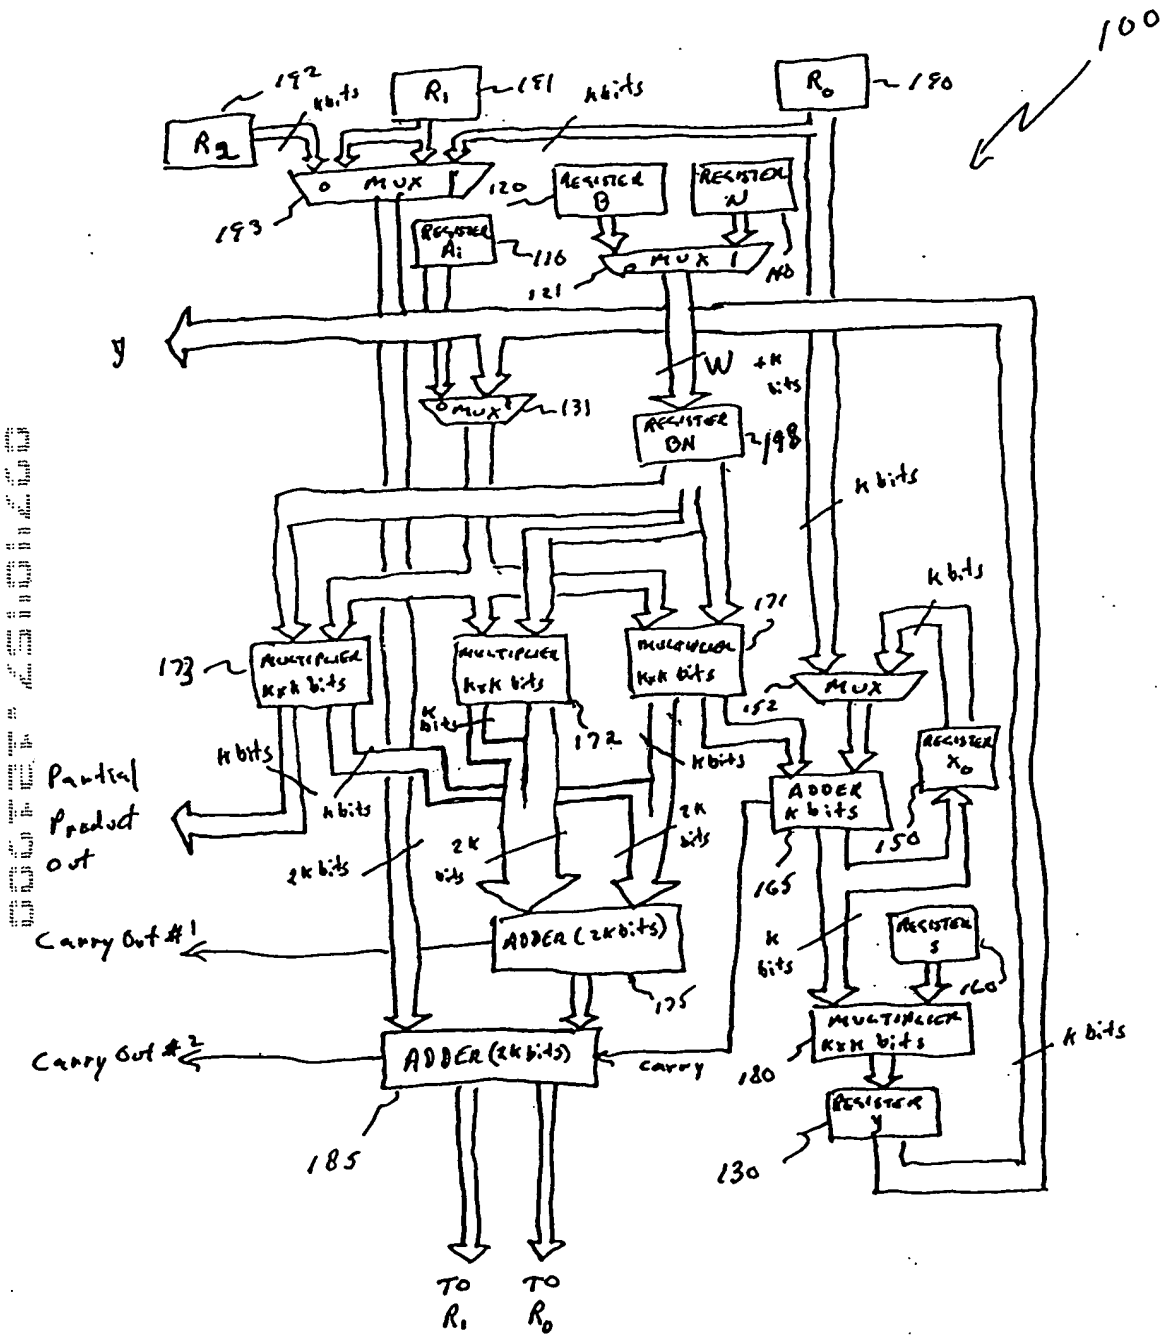 100
192
K bits
R2
R1
191
K bits
R0
190
0 MUX 1
193
120
REGISTER
B
REGISTER
N
REGISTER
Ai
110
0 MUX 1
121
140
y
W +K
bits
0 MUX 1
131
REGISTER
BN
198
K bits
K bits
173
MULTIPLIER
KxK bits
MULTIPLIER
KxK bits
MULTIPLIER
KxK bits
171
MUX
152
K bits
172
K bits
K bits
K bits
REGISTER
X0
150
ADDER
K bits
165
Partial
Product
Out
2K bits
2K
bits
2K
bits
Carry Out #1
ADDER (2K bits)
175
K
bits
REGISTER
S
160
Carry Out #2
ADDER (2K bits)
185
carry
MULTIPLIER
KxK bits
180
K bits
REGISTER
Y
130
TO
R1
TO
R0